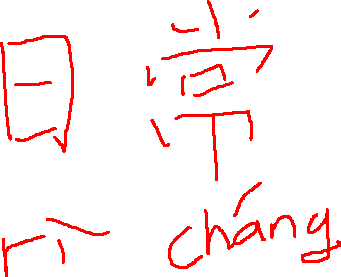 日常
rì cháng